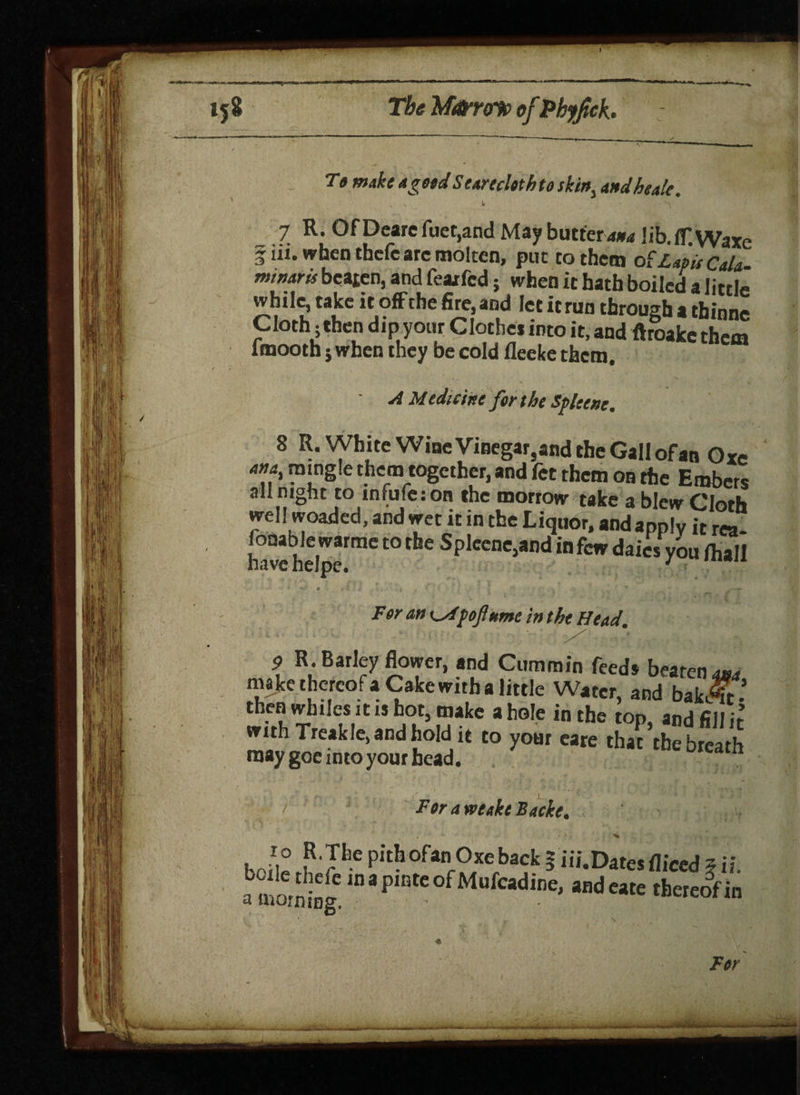 158 The Marrow of Phyſick.
To make a good Searecloth to skin, and heale.
7 R. Of Deare ſuet,and May butter ana lib.ſſ.Waxe
℥ iii. when theſe are molten, put to them of Lapis Cala-
minaris beaten, and ſearſed; when it hath boiled a little
while, take it off the fire, and let it run through a thinne
Cloth; then dip your Clothes into it, and ſtroake them
ſmooth; when they be cold ſleeke them.
A Medicine for the Spleene.
8 R. White Wine Vinegar,and the Gall of an Oxe
ana, mingle them together, and ſet them on the Embers
all night to infuſe: on the morrow take a blew Cloth
well woaded, and wet it in the Liquor, and apply it rea-
ſonable warme to the Spleene,and in few daies you ſhall
have helpe.
For an Apoſtume in the Head.
9 R. Barley flower, and Cummin ſeeds beaten ana,
make thereof a Cake with a little Water, and bake it;
then whiles it is hot, make a hole in the top, and fill it
with Treakle, and hold it to your eare that the breath
may goe into your head.
For a weake Backe.
10 R.The pith of an Oxe back ℥ iii.Dates ſliced ℥ ii.
boile theſe in a pinte of Muſcadine, and eate thereof in
a morning.
For